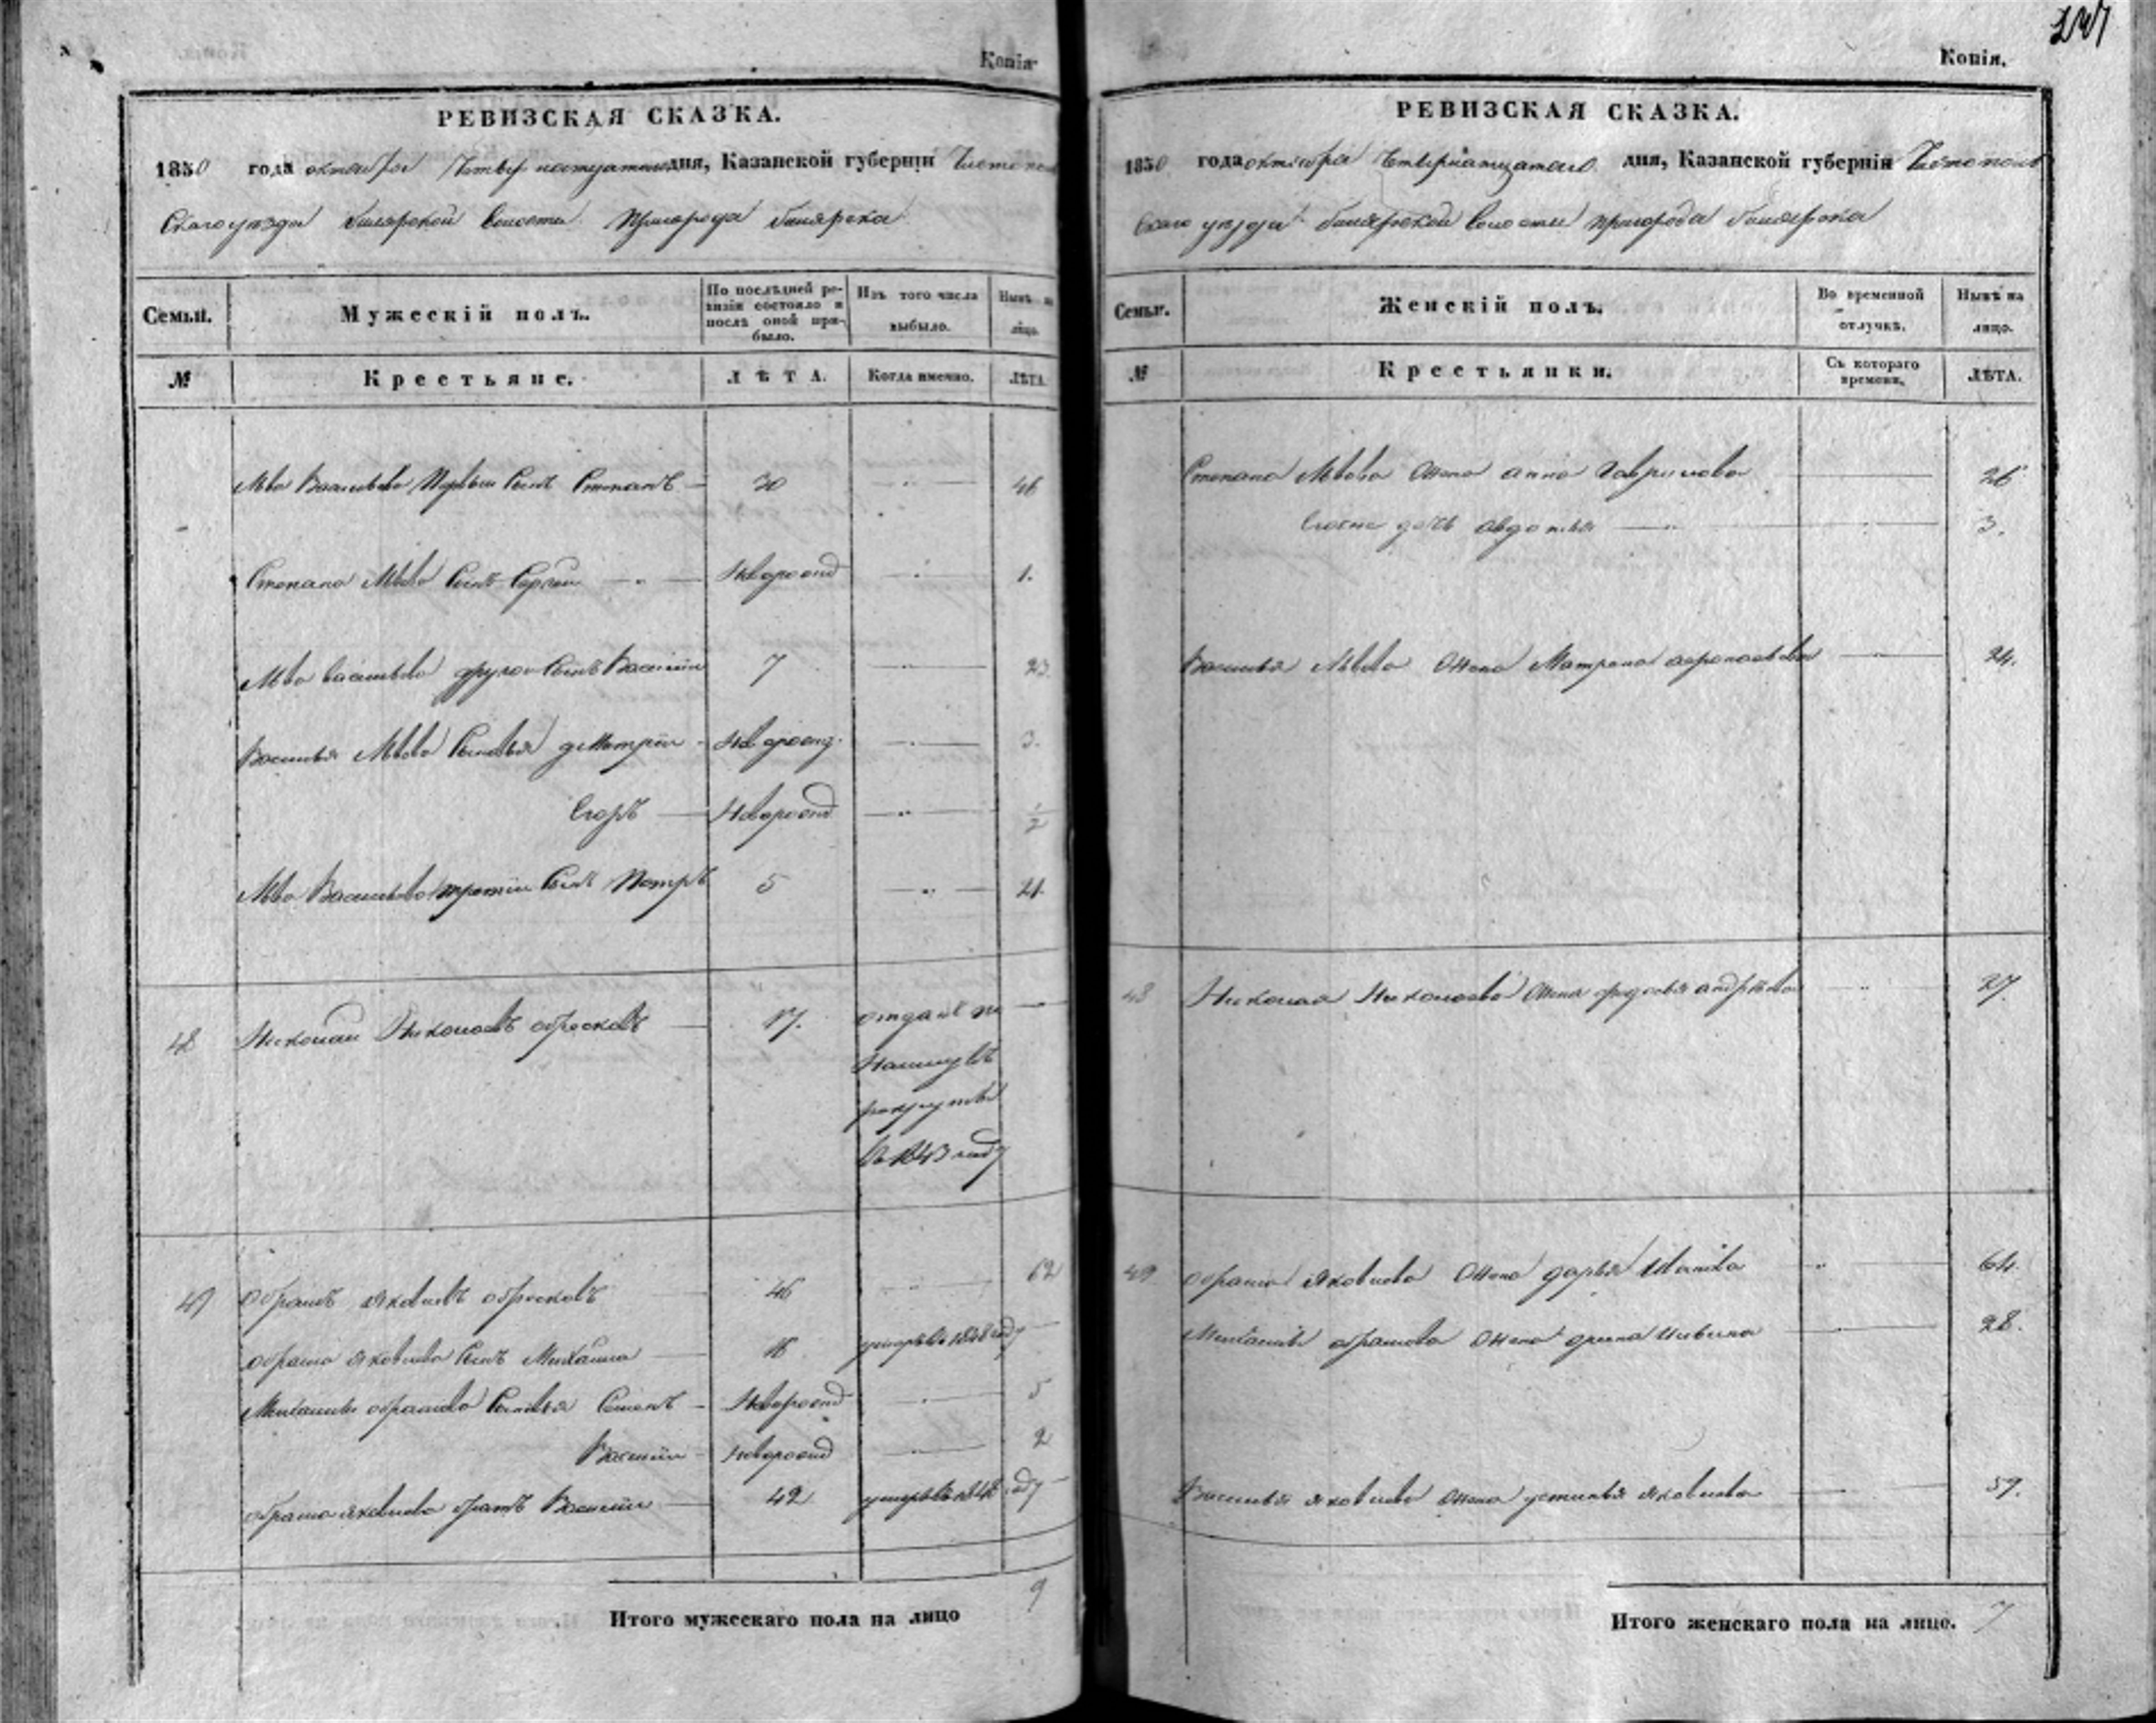 Копія
РЕВИЗСКАЯ СКАЗКА.
1850 года октября Четыр надцатого дня, Казанской губерніи Чистопол
Скаго уезда билярской Волости Пригорода билярска
Семьи. Мужескій полъ. По послѣдней ревизіи состояло и послѣ оной прибыло. Изъ того числа выбыло. Нынѣ на лицо.
№ Крестьяне. ЛѢТА. Когда имянно. ЛѢТА.
Лва Васильева Первый Сынъ Степанъ 30 46
Степана Львова Сынъ Сергѣй Новорожд 1.
Лва васильева другой Сынъ Василій 7 23.
Василья Львова Сыновья дмитрій Новорожд. 3.
Егоръ Новорожд 1/2
Лва Васильева третій Сынъ Петръ 5 21.
48 Николай Николаевъ обросковъ 17. отданъ
рекруты
въ 1843 году
49 Обрамъ Яковлевъ обросковъ 46 62
обрама яковлева Сынъ Михаила 18 умеръ въ 1848 году
Михайлы обрамова Сыновья Семенъ Новорожд 5
Василій Новорожд 2
обрама яковлева братъ Василій 42 умеръ въ 1848 году
Итого мужескаго пола на лицо 9
Копія.
РЕВИЗСКАЯ СКАЗКА.
1850 года октября Четырнатцатаго дня, Казанской губерніи Чистополь
Скаго уезда билярской Волости пригорода билярска
Семьи. Женскій полъ. Во временной отлучкѣ. Нынѣ на лицо.
№ Крестьянки. Съ котораго времени. ЛѢТА.
Степана Львова Жена анна Гаврилова 26
Ево дочь авдотья 3.
Василья Львова Жена Матрена 24.
48 Николая Николаева Жена федосья андрѣева 27.
49 обрама Яковлева Жена дарья Иванова 64.
Михайлы обрамова Жена 28.
Василья яковлева Жена устинья яковлева 59.
Итого женскаго пола на лицо. 7